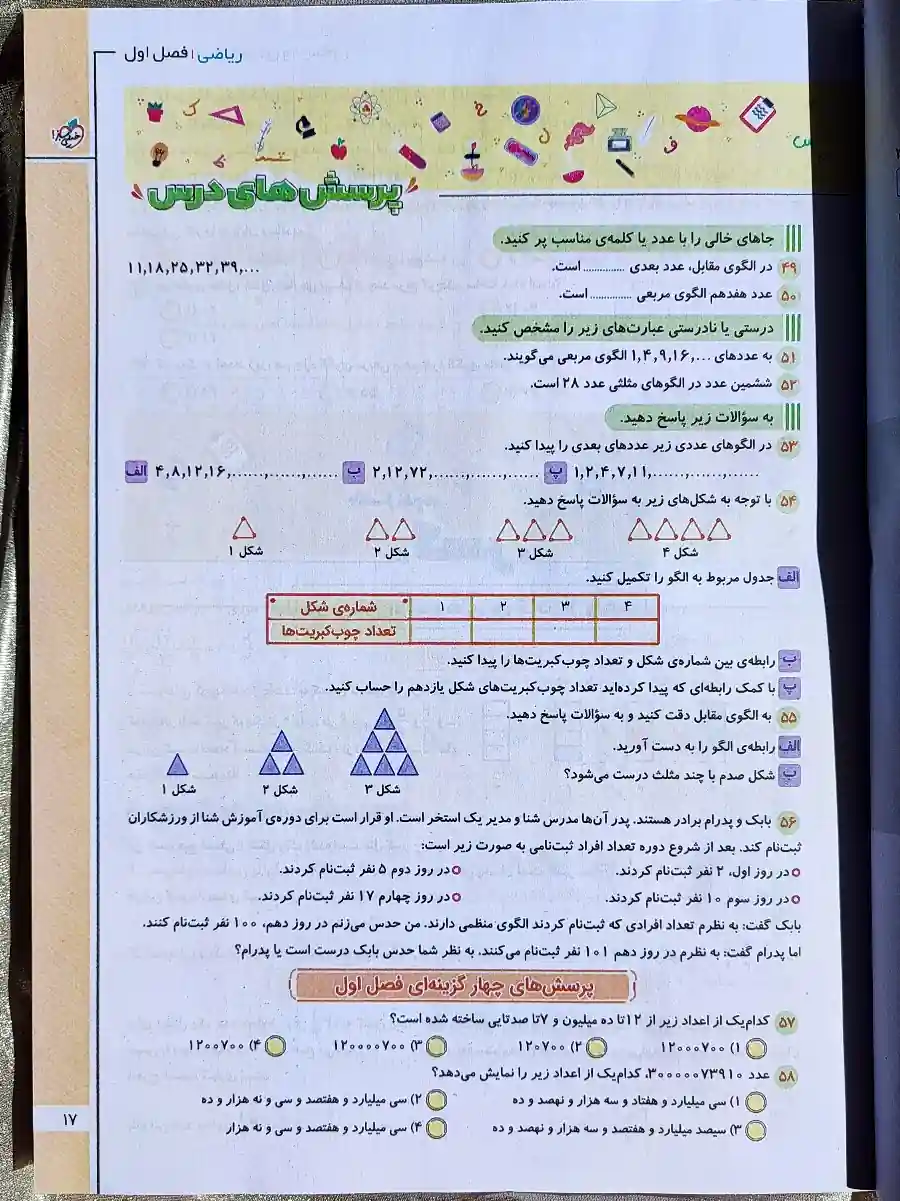 ریاضی | فصل اول
پرسش‌های درس
جاهای خالی را با عدد یا کلمه‌ی مناسب پر کنید.
۴۹ در الگوی مقابل، عدد بعدی ............. است. ۱۱,۱۸,۲۵,۳۲,۳۹,...
۵۰ عدد هفدهم الگوی مربعی ............. است.
درستی یا نادرستی عبارت‌های زیر را مشخص کنید.
۵۱ به عددهای ...,۱,۴,۹,۱۶ الگوی مربعی می‌گویند.
۵۲ ششمین عدد در الگوهای مثلثی عدد ۲۸ است.
به سؤالات زیر پاسخ دهید.
۵۳ در الگوهای عددی زیر عددهای بعدی را پیدا کنید.
الف ۴,۸,۱۲,۱۶,......,......,...... ب ۲,۱۲,۷۲,......,......,...... پ ۱,۲,۴,۷,۱۱,......,......,......
۵۴ با توجه به شکل‌های زیر به سؤالات پاسخ دهید.
شکل ۱ شکل ۲ شکل ۳ شکل ۴
الف جدول مربوط به الگو را تکمیل کنید.
شماره‌ی شکل ۱ ۲ ۳ ۴
تعداد چوب‌کبریت‌ها
ب رابطه‌ی بین شماره‌ی شکل و تعداد چوب‌کبریت‌ها را پیدا کنید.
پ با کمک رابطه‌ای که پیدا کرده‌اید تعداد چوب‌کبریت‌های شکل یازدهم را حساب کنید.
۵۵ به الگوی مقابل دقت کنید و به سؤالات پاسخ دهید.
الف رابطه‌ی الگو را به دست آورید.
ب شکل صدم با چند مثلث درست می‌شود؟
شکل ۱ شکل ۲ شکل ۳
۵۶ بابک و پدرام برادر هستند. پدر آن‌ها مدرس شنا و مدیر یک استخر است. او قرار است برای دوره‌ی آموزش شنا از ورزشکاران
ثبت‌نام کند. بعد از شروع دوره تعداد افراد ثبت‌نامی به صورت زیر است:
در روز اول، ۲ نفر ثبت‌نام کردند. در روز دوم ۵ نفر ثبت‌نام کردند.
در روز سوم ۱۰ نفر ثبت‌نام کردند. در روز چهارم ۱۷ نفر ثبت‌نام کردند.
بابک گفت: به نظرم تعداد افرادی که ثبت‌نام کردند الگوی منظمی دارند. من حدس می‌زنم در روز دهم، ۱۰۰ نفر ثبت‌نام کنند.
اما پدرام گفت: به نظرم در روز دهم ۱۰۱ نفر ثبت‌نام می‌کنند. به نظر شما حدس بابک درست است یا پدرام؟
پرسش‌های چهار گزینه‌ای فصل اول
۵۷ کدام‌یک از اعداد زیر از ۱۲تا ده میلیون و ۷تا صدتایی ساخته شده است؟
۱) ۱۲۰۰۰۷۰۰ ۲) ۱۲۰۷۰۰ ۳) ۱۲۰۰۰۰۷۰۰ ۴) ۱۲۰۰۷۰۰
۵۸ عدد ۳۰۰۰۰۰۷۳۹۱۰، کدام‌یک از اعداد زیر را نمایش می‌دهد؟
۱) سی میلیارد و هفتاد و سه هزار و نهصد و ده ۲) سی میلیارد و هفتصد و سی و نه هزار و ده
۳) سیصد میلیارد و هفتصد و سه هزار و نهصد و ده ۴) سی میلیارد و هفتصد و سی و نه هزار
۱۷